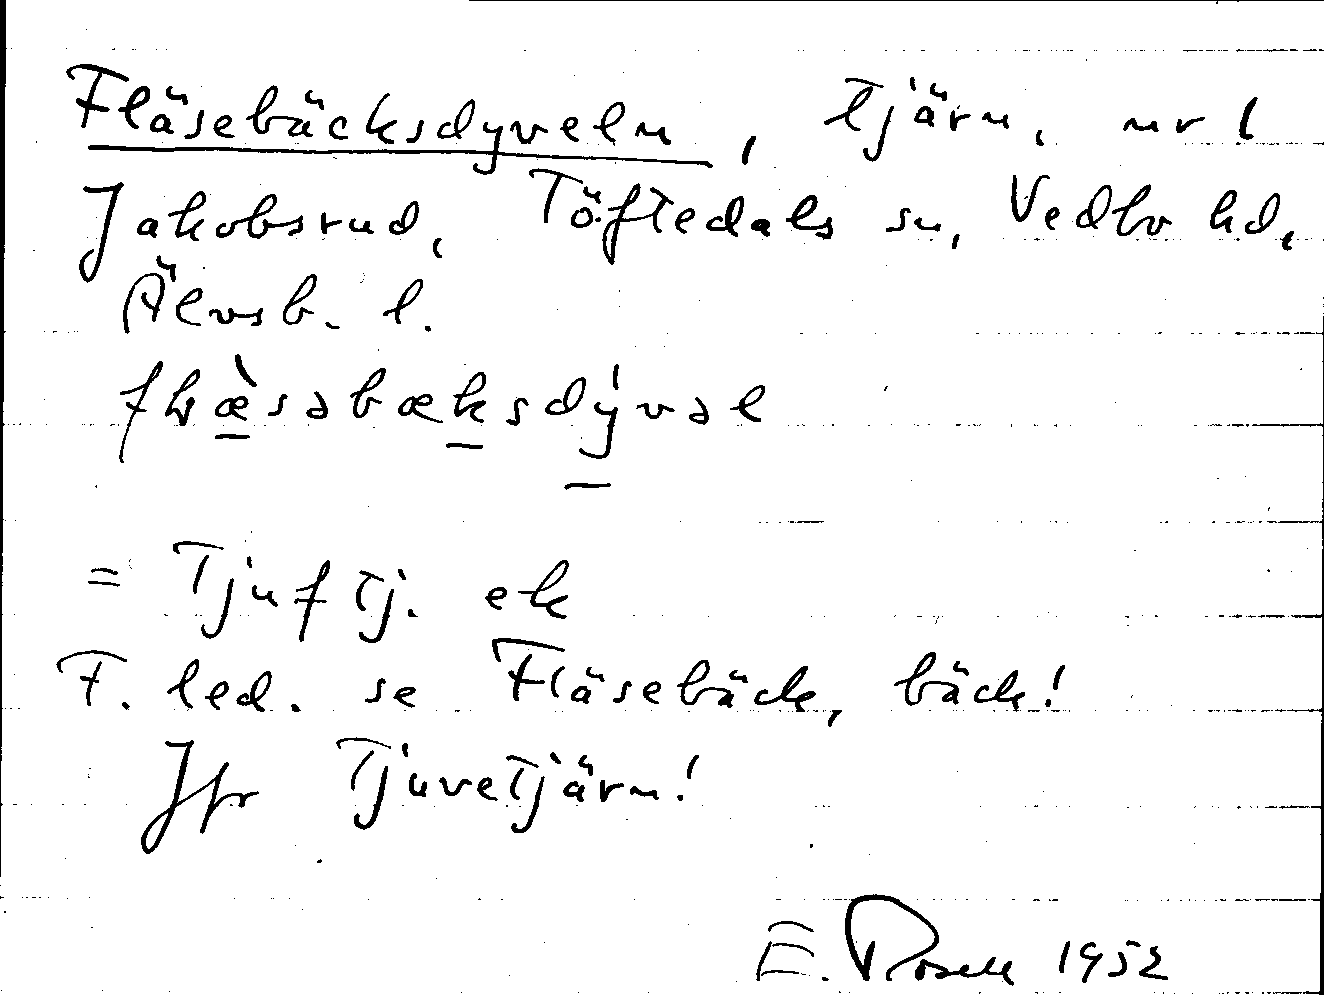 Fläsebäcksdyveln, tjärn, nr 1
Jakobsrud, Töftedals sn, Vedbo hd,
Älvsb. l.
= Tjuftj. ek
F. led. se Fläsebäck, bäck!
Jfr Tjuvetjärn!
E. Rosell 1952